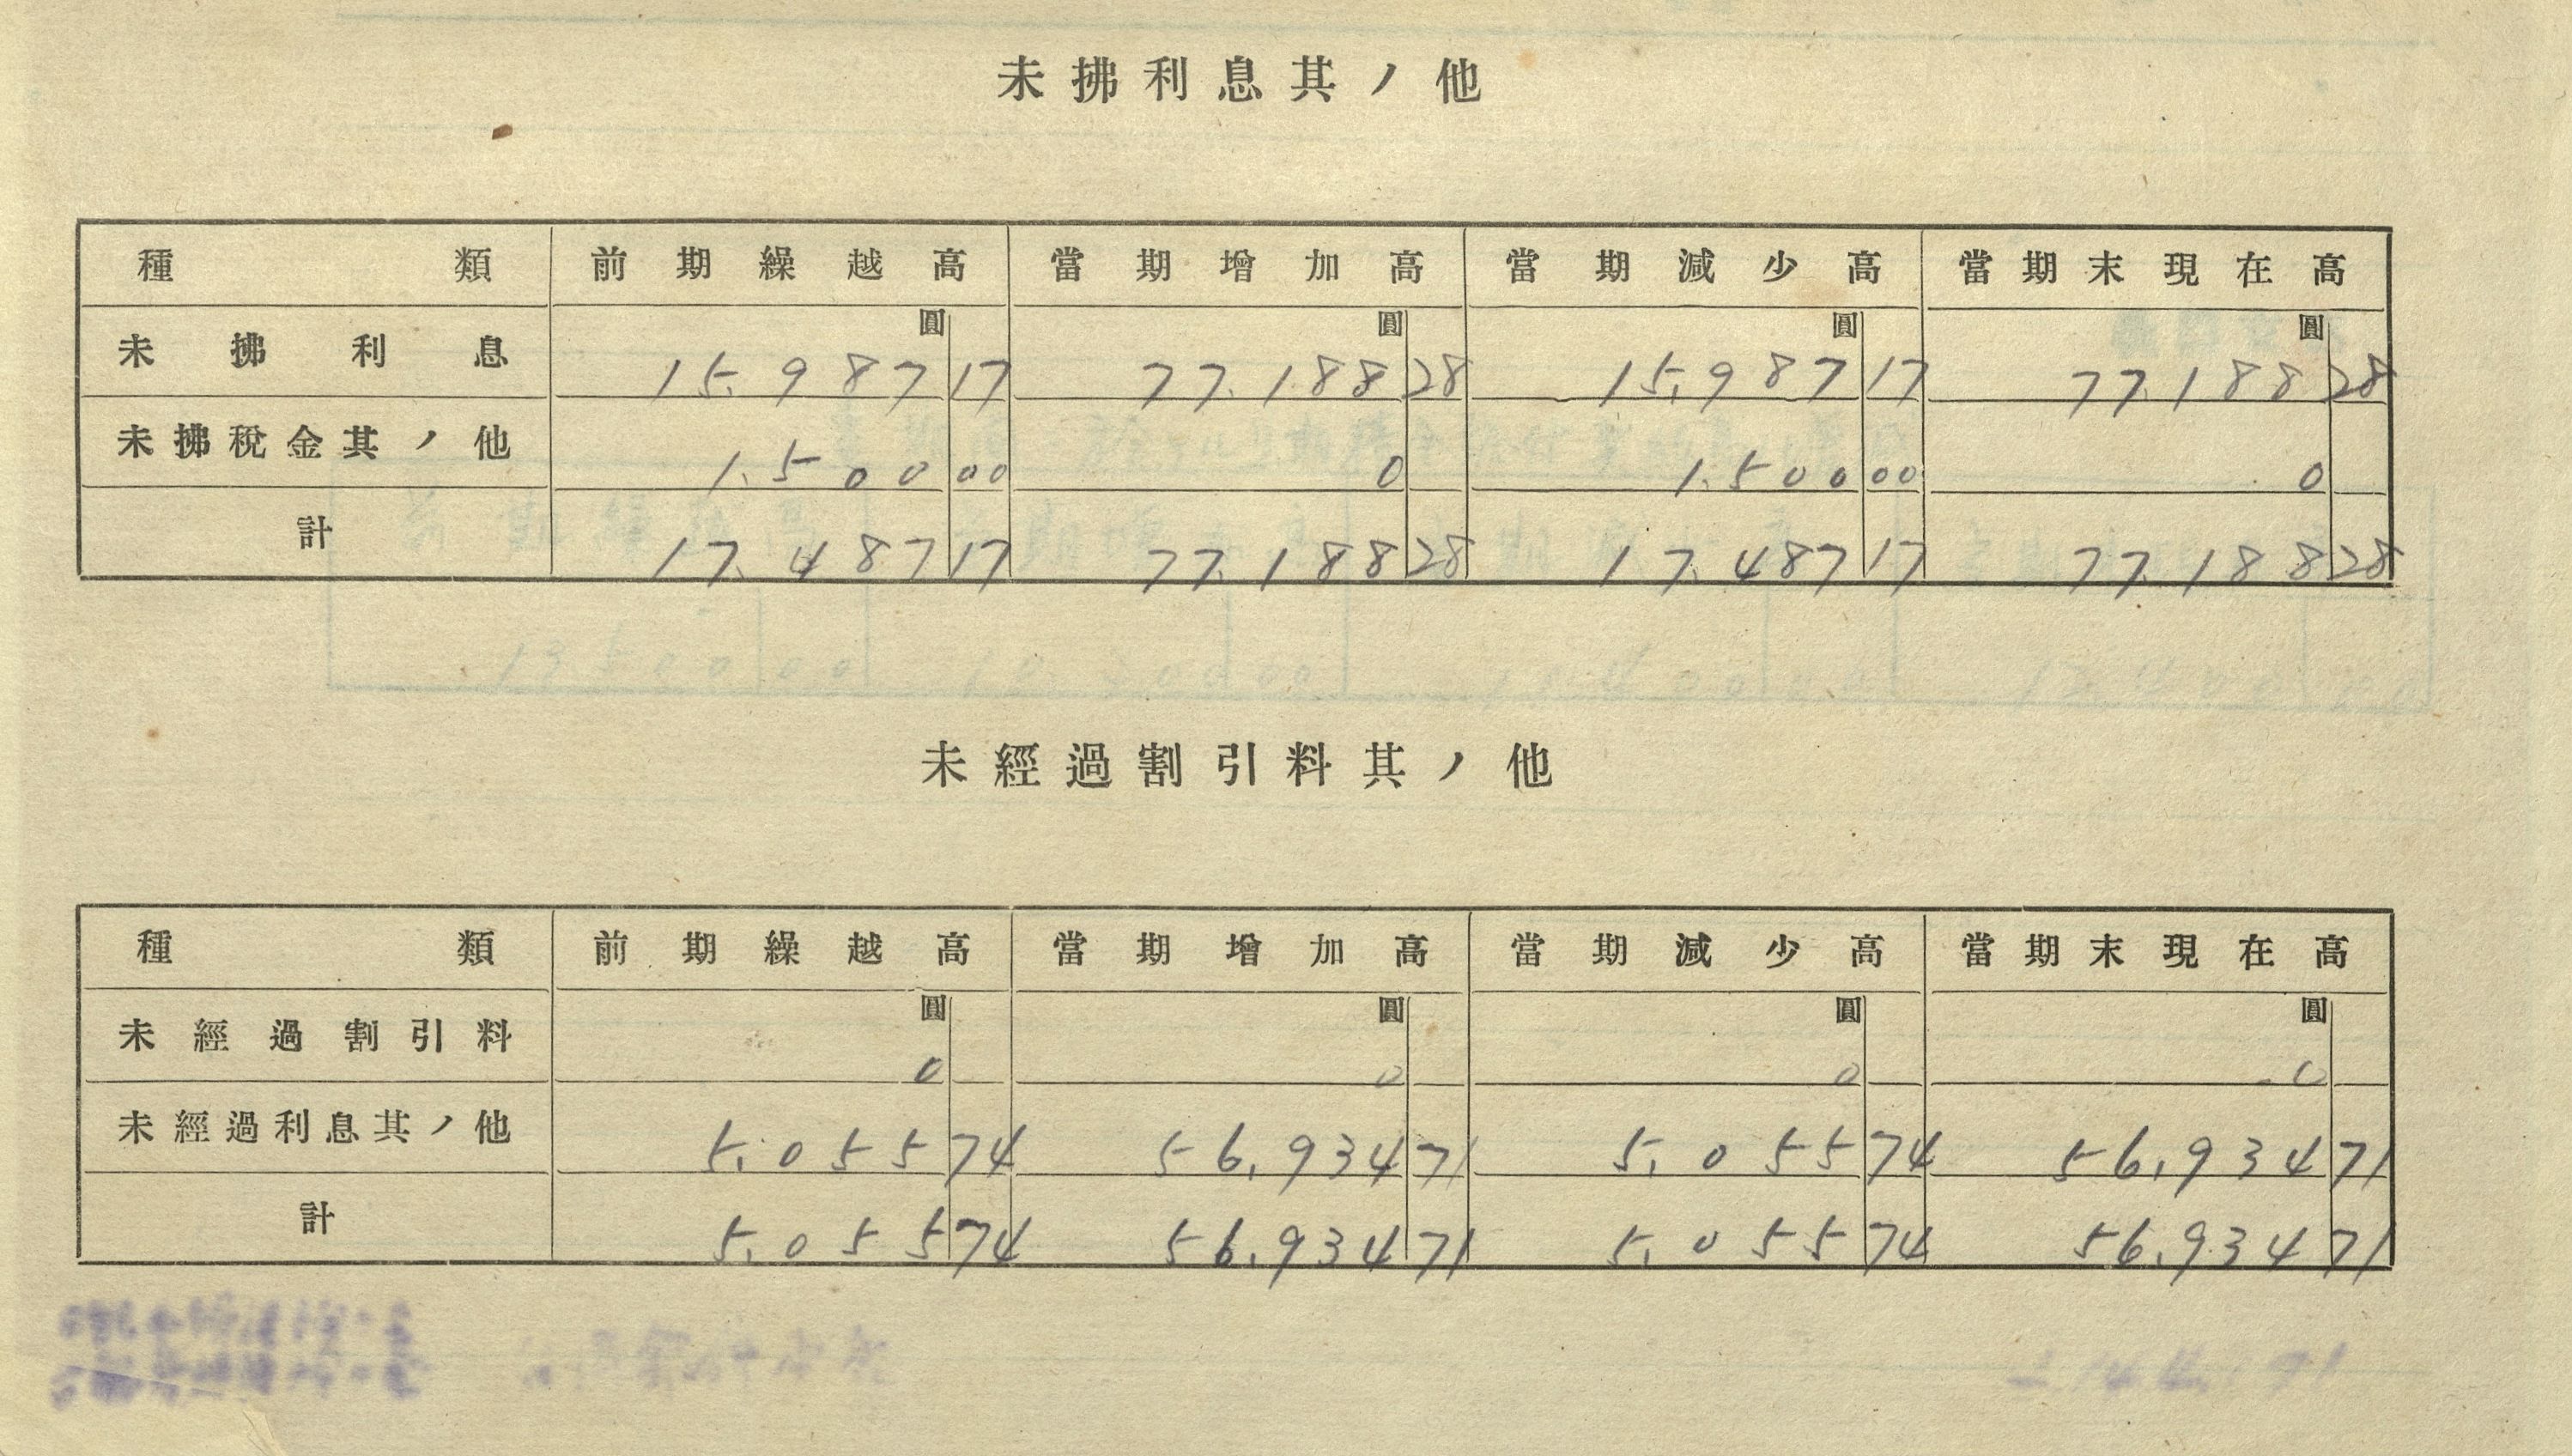 未拂利息其ノ他
種類 前期繰越高 當期增加高 當期減少高 當期末現在高
圓 圓 圓 圓
未拂利息 15.987 17 77.188 28 15.987 17 77.188 28
未拂稅金其ノ他 1.500 00 0 1.500 00 0
計 17.487 17 77.188 28 17.487 17 77.188 28
未經過割引料其ノ他
種類 前期繰越高 當期增加高 當期減少高 當期末現在高
圓 圓 圓 圓
未經過割引料 0 0 0 0
未經過利息其ノ他 5.055 74 56.934 71 5.055 74 56.934 71
計 5.055 74 56.934 71 5.055 74 56.934 71